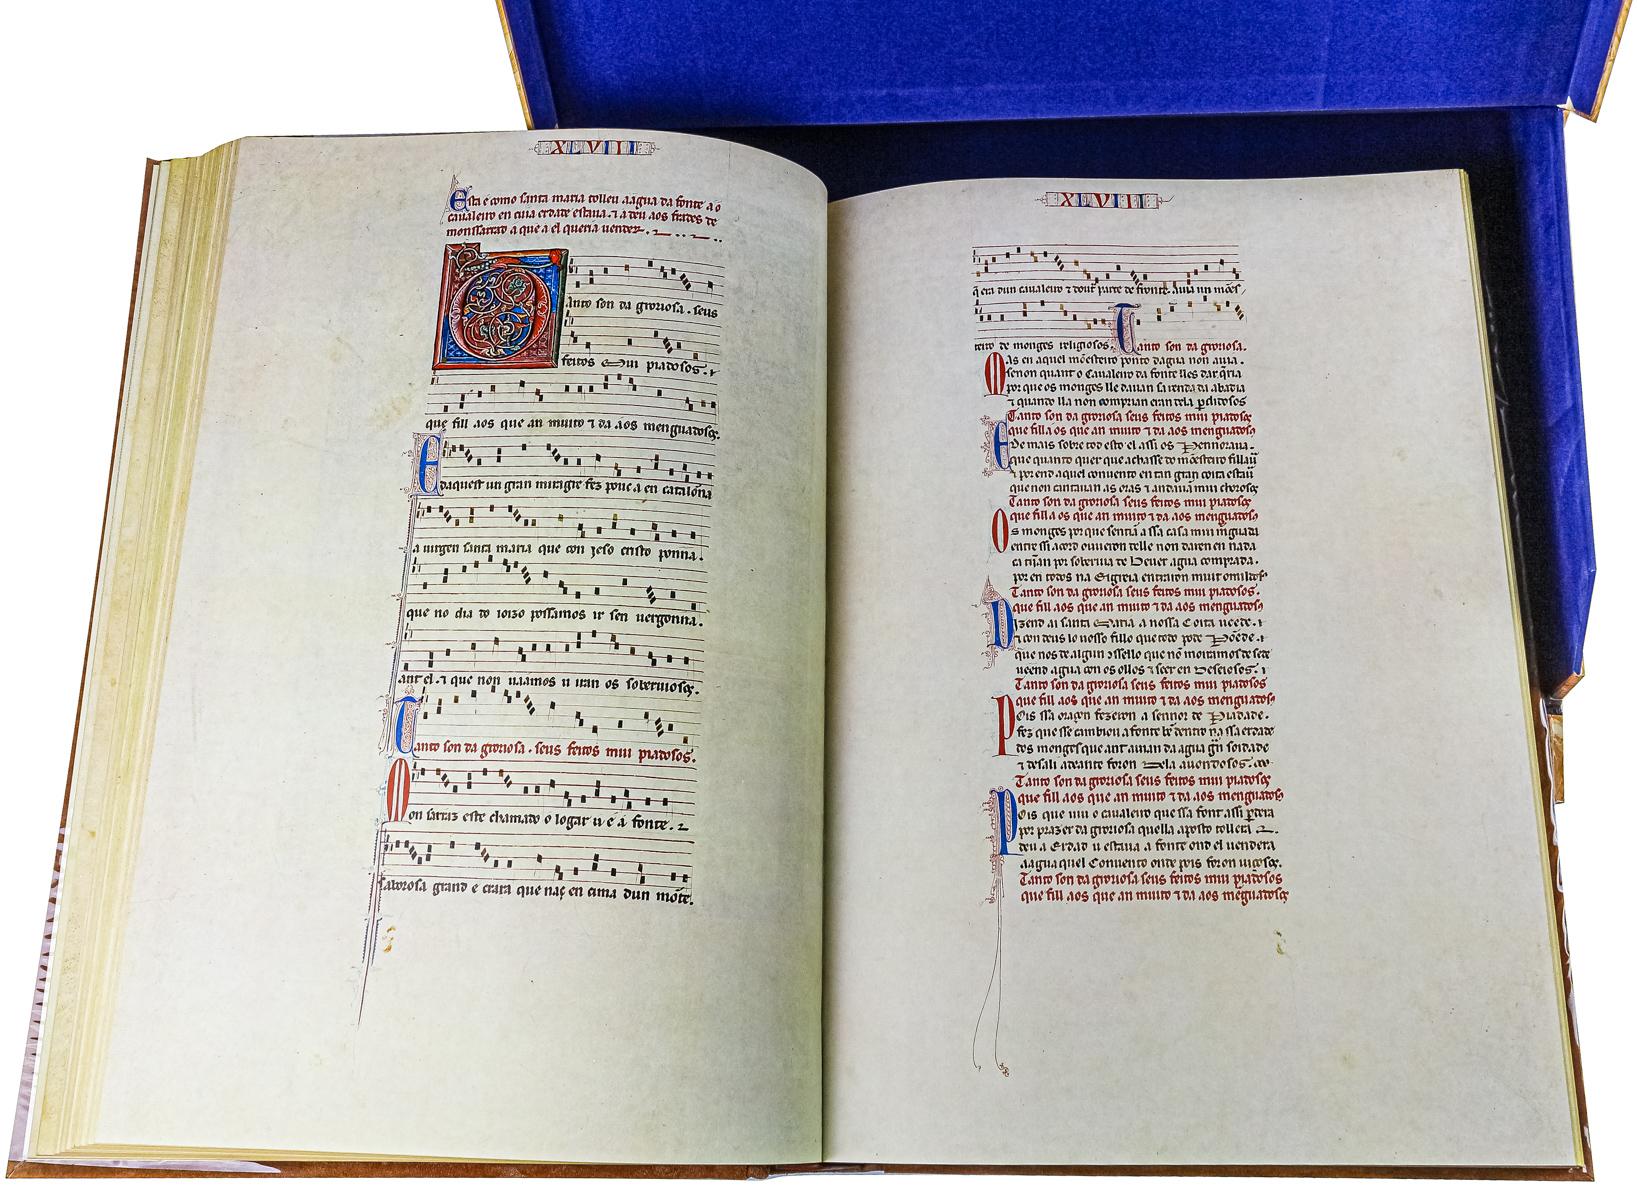 XLVIII
Esta e como santa maria tolleu a agua da fonte ao
caualeiro en cuia erdade estaua. ⁊ a deu aos frades de
monssarrad a que a el queria uender.
Tanto son da groriosa. seus
feitos mui piadosos. ⁊
que fill aos que an muito ⁊ da aos menguadosos.
E daquest un gran miragre fez pouc a en catalonna
a uirgen santa maria que con ieso cristo ponna.
que no dia do ioizo possamos ir sen uergonna.
ant el. ⁊ que non uaamos u iran os soberuiosos.
Tanto son da groriosa. seus feitos mui piadosos.
Mon sarraz este chamado o logar u e a fonte.
saborosa grand e crara que naç en cima dun mõte.
XLVIII
q̃ era dun caualeiro ⁊ dout parte de fronte. auia un mões
teiro de monges religiosos. Tanto son da groriosa.
Mas en aquel mõesteiro ponto dagua non auia.
senon quant o caualeiro da fonte lles dar q̃ria
por que os monges lle dauan sa renda da abadia
⁊ quando lla non comprian eran dela perdidosos
Tanto son da groriosa seus feitos mui piadosos
que fill a os que an muito ⁊ da aos menguados
E de mais sobre tod esto el assi os pennoraua.
que quanto quer que achasse do mõesteiro fillaũ
⁊ por end aquel conuento en tan gran coita estaũ
que non cantauan as oras ⁊ andauã mui chorosos
Tanto son da groriosa seus feitos mui piadosos
que fill a os que an muito ⁊ da aos menguados
Os monges por que sentiã a ssa casa mui miguada
entre ssi acord ouueron de lle non daren en nada
ca tiñan por soberuia de beuer agua comprada.
por en todos na eigreia entraron muit omildos
Tanto son da groriosa seus feitos mui piadosos.
que fill aos que an muito ⁊ da aos menguados
Dizend ai santa maria a nossa coita ueede. ⁊
⁊ con deus lo nosso fillo que todo pode põede. ⁊
que nos de algun issello que nõ moiramos de sede
ueend agua con os ollos ⁊ seer en deseiosos. ⁊
Tanto son da groriosa seus feitos mui piadosos
que fill aos que an muito ⁊ da aos menguados
Pois ssa oraçon fezeron a sennor de piadade.
fez que sse canbiou a fonte bẽ dentro na ssa erdade
dos monges que ant auian da agua grã soidade
⁊ desali adeante foron dela auondosos.
Tanto son da groriosa seus feitos mui piadosos
que fill aos que an muito ⁊ da aos menguados
Pois que uiu o caualeiro que ssa font assi perdera
por prazer da groriosa que lla aposto tollera
deu a erdad u estaua a fonte ond el uendera
a agua aquel conuento onde pois foron uiçosos.
Tanto son da groriosa seus feitos mui piadosos
que fill aos que an muito ⁊ da aos mẽguadosos